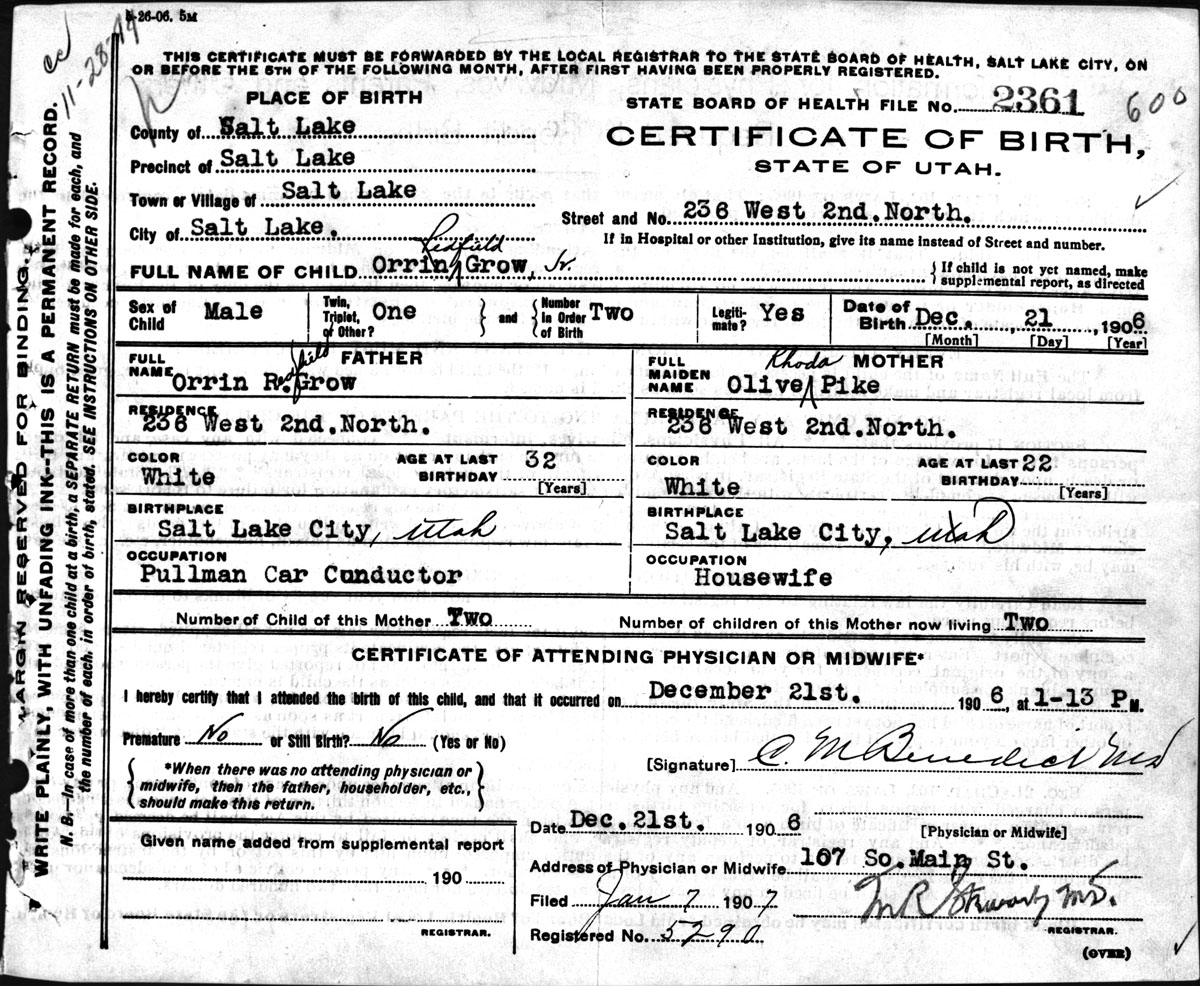 -26-06. 5M
cc
11-28-
THIS CERTIFICATE MUST BE FORWARDED BY THE LOCAL REGISTRAR TO THE STATE BOARD OF HEALTH, SALT LAKE CITY, ON
OR BEFORE THE 5TH OF THE FOLLOWING MONTH, AFTER FIRST HAVING BEEN PROPERLY REGISTERED.
PLACE OF BIRTH
STATE BOARD OF HEALTH FILE No. 2361
600
County of Salt Lake
CERTIFICATE OF BIRTH,
Precinct of Salt Lake
STATE OF UTAH.
Town or Village of Salt Lake
Street and No. 236 West 2nd. North.
City of Salt Lake.
If in Hospital or other Institution, give its name instead of Street and number.
Redfield
FULL NAME OF CHILD Orrin Grow, Jr.
{ If child is not yet named, make
supplemental report, as directed
Sex of Child Male
Twin, Triplet, or Other? One
and
Number in Order of Birth Two
Legiti- mate? Yes
Date of Birth Dec. 21 1906
[Month] [Day] [Year]
FULL NAME FATHER
Orrin R.edfield Grow
FULL MAIDEN NAME MOTHER
Olive Rhoda Pike
RESIDENCE
236 West 2nd. North.
RESIDENCE
236 West 2nd. North.
COLOR White
AGE AT LAST BIRTHDAY 32 [Years]
COLOR White
AGE AT LAST BIRTHDAY 22 [Years]
BIRTHPLACE
Salt Lake City, Utah
BIRTHPLACE
Salt Lake City, Utah
OCCUPATION
Pullman Car Conductor
OCCUPATION
Housewife
Number of Child of this Mother Two
Number of children of this Mother now living Two
CERTIFICATE OF ATTENDING PHYSICIAN OR MIDWIFE*
I hereby certify that I attended the birth of this child, and that it occurred on December 21st. 1906, at 1-13 P M.
Premature No or Still Birth? No (Yes or No)
*When there was no attending physician or
midwife, then the father, householder, etc.,
should make this return.
[Signature] C. M Benedict MD
Date Dec. 21st. 1906
[Physician or Midwife]
Given name added from supplemental report
190
REGISTRAR.
Address of Physician or Midwife 167 So. Main St.
Filed Jan 7 1907
Registered No. 5290
REGISTRAR.
(OVER)
MARGIN RESERVED FOR BINDING.
WRITE PLAINLY, WITH UNFADING INK--THIS IS A PERMANENT RECORD.
N. B.—In case of more than one child at a birth, a SEPARATE RETURN must be made for each, and
the number of each, in order of birth, stated. SEE INSTRUCTIONS ON OTHER SIDE.